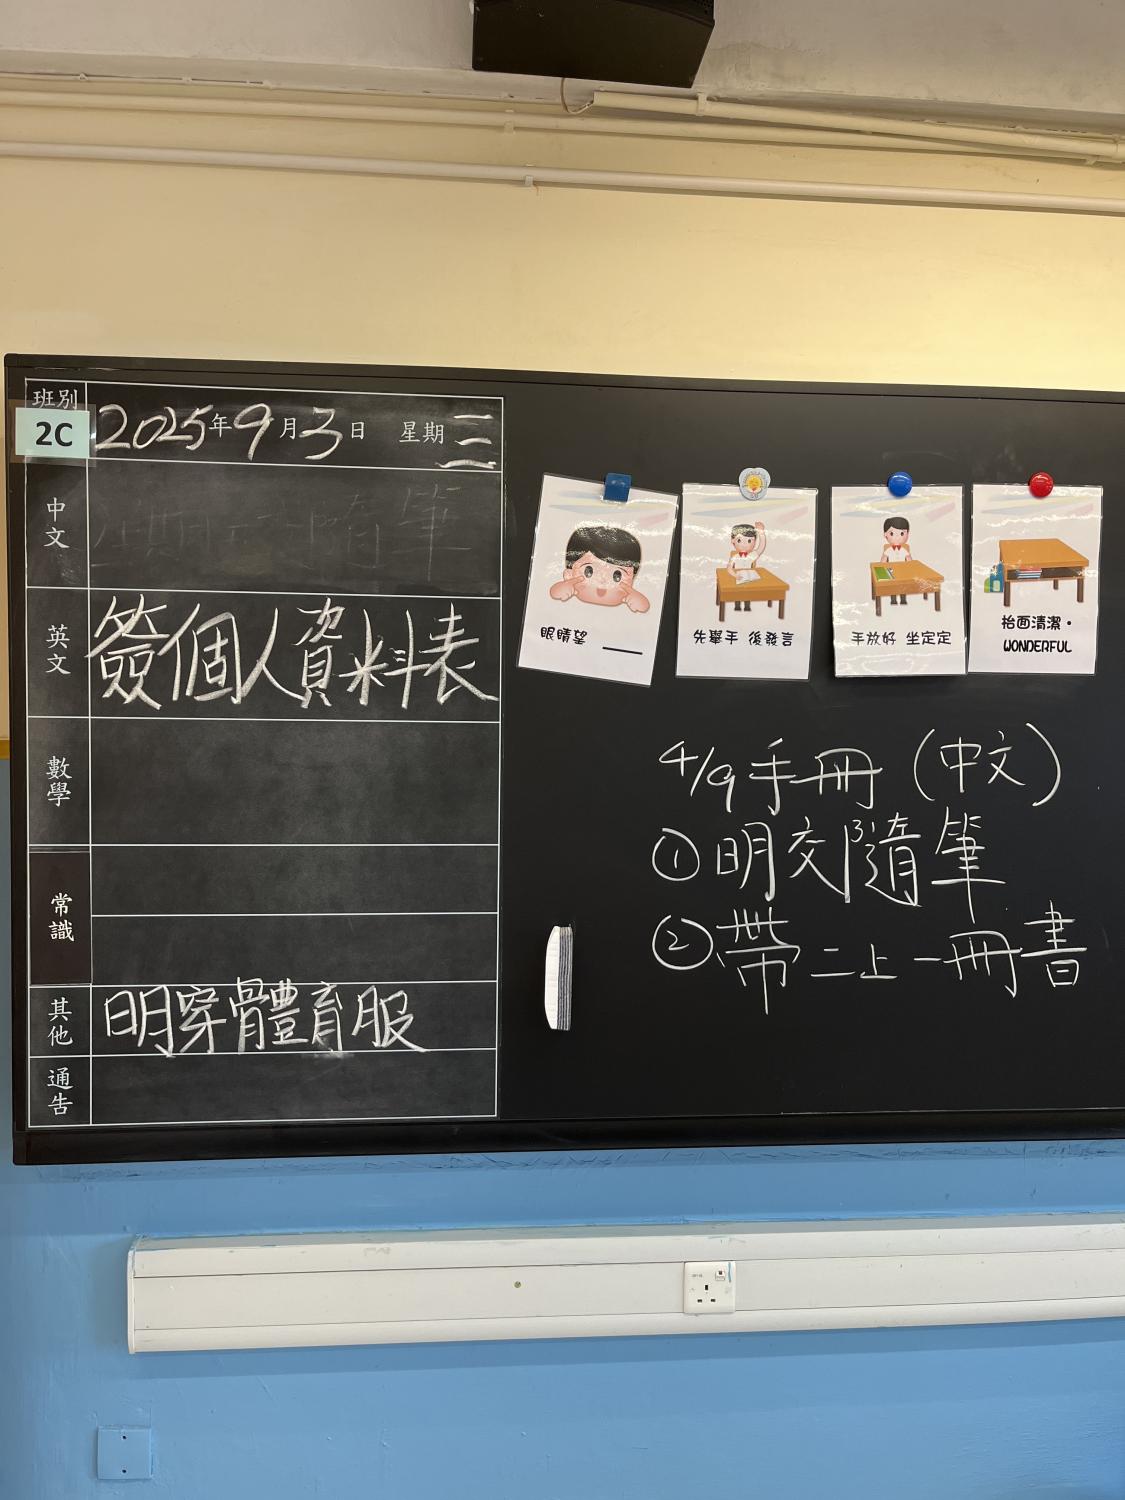 班別
2C
2025年9月3日 星期三
中文
英文
簽個人資料表
數學
常識
其他
明穿體育服
通告
眼睛望 ____
先舉手 後發言
手放好 坐定定
抬面清潔・
WONDERFUL
4/9手冊(中文)
①明交隨筆
②帶二上一冊書